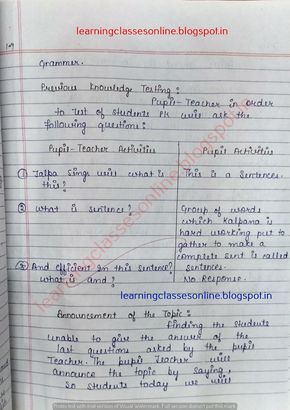 learningclassesonline.blogspot.in
Grammer.
Previous Knowledge Testing :
Pupil-Teacher in order
to Test of students PK will ask the
following questions :
Pupil-Teacher Activities
Pupil Activities
① Jalpa Sings well what is
this ?
This is a Sentences.
② What is sentence ?
Group of words
which Kalpana is
hard working put to
gather to make a
complete sent is called
sentences.
③ And efficient in this sentence?
what is and ?
No Response.
learningclassesonline.blogspot.in
Announcement of the Topic :
Finding the students
unable to give the answer of the
last questions asked by the pupil
Teacher. The pupil Teacher will
announce the topic by saying,
So students today we will
learningclassesonline.blogspot.in